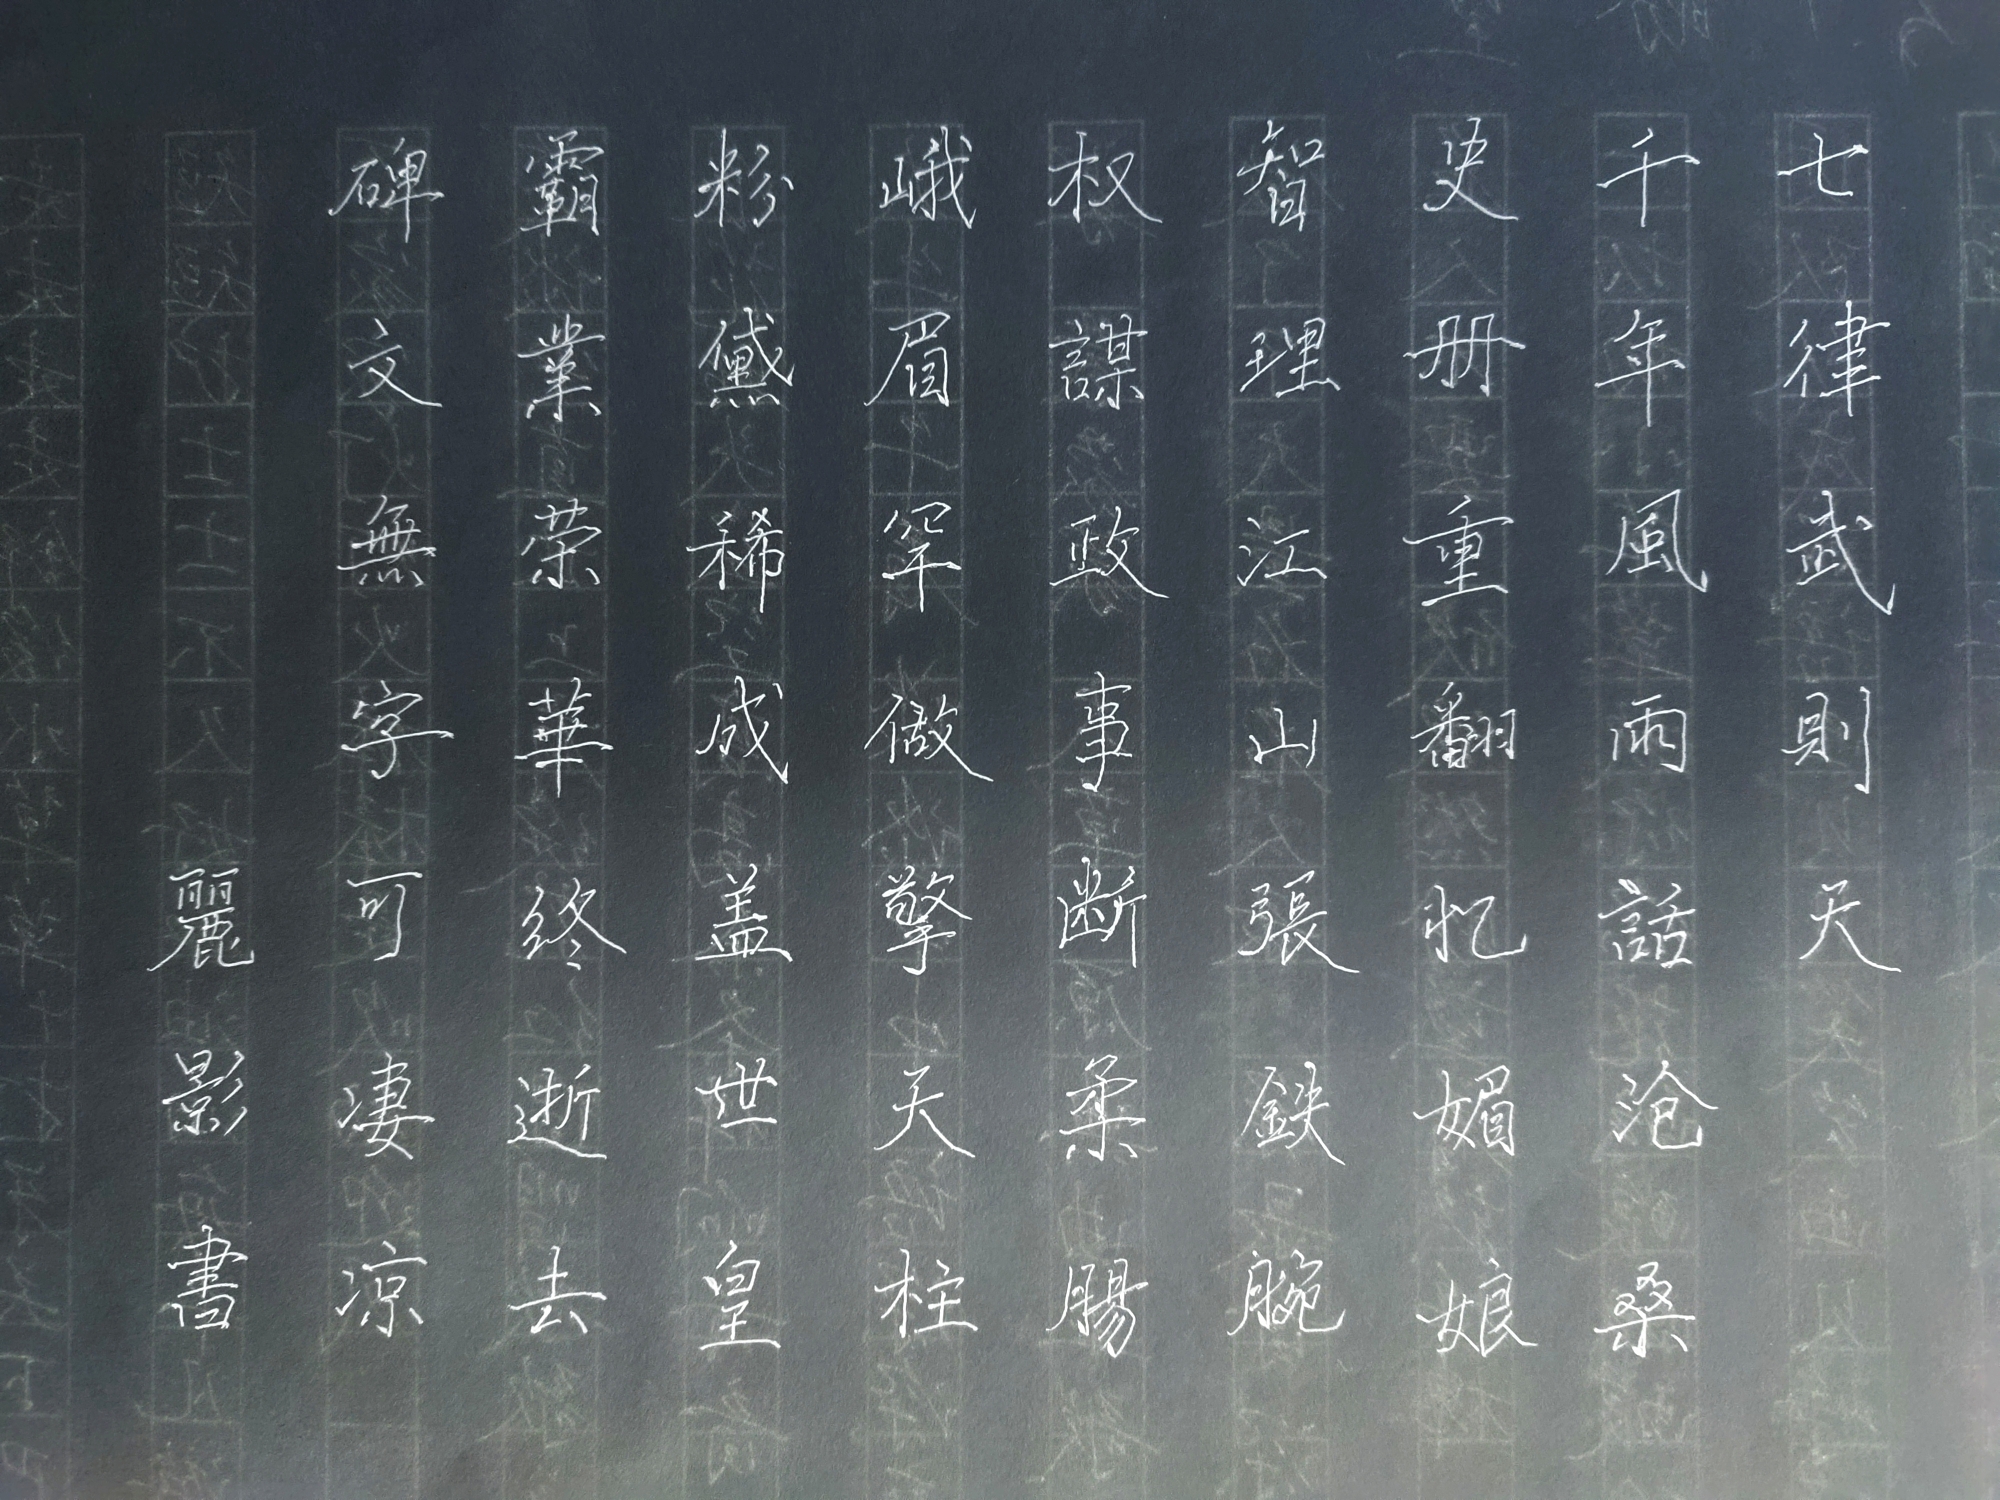 七律武則天
千年風雨話沧桑
史册重翻忆媚娘
智理江山張鉄腕
权謀政事断柔腸
峨眉罕做擎天柱
粉黛稀成盖世皇
霸業荣華終逝去
碑文無字可凄凉
麗影書